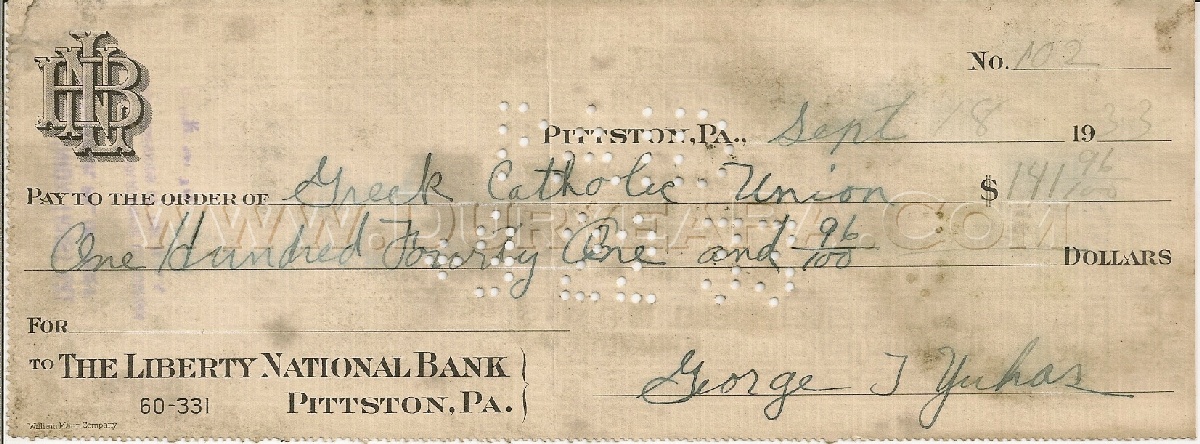 LNB
No. 102
PITTSTON, PA., Sept 18 1933
PAY TO THE ORDER OF Greek Catholic Union $141 96/100
WWW.DURYEAPA.COM
One Hundred Fourty One and 96/100 DOLLARS
FOR
TO THE LIBERTY NATIONAL BANK
60-331 PITTSTON, PA.
George J Yuhas
William Company